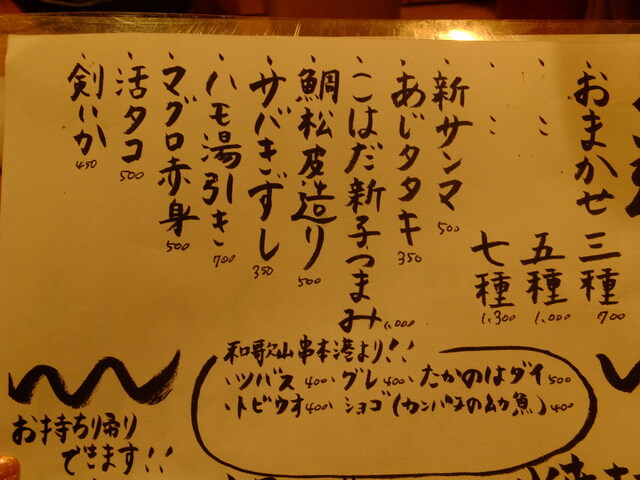 おまかせ 三種 700
〃 五種 1,000
〃 七種 1,300
新サンマ 500
あじタタキ 350
こはだ新子つまみ 1,000
鯛松皮造り 500
サバきずし 350
ハモ湯引き 700
マグロ赤身 500
活タコ 500
剣いか 450
和歌山串本港より!!
ツバス 400 グレ 400 たかのはダイ 500
トビウオ 400 ショゴ(カンパチの幼魚) 400
お持ち帰り
できます!!